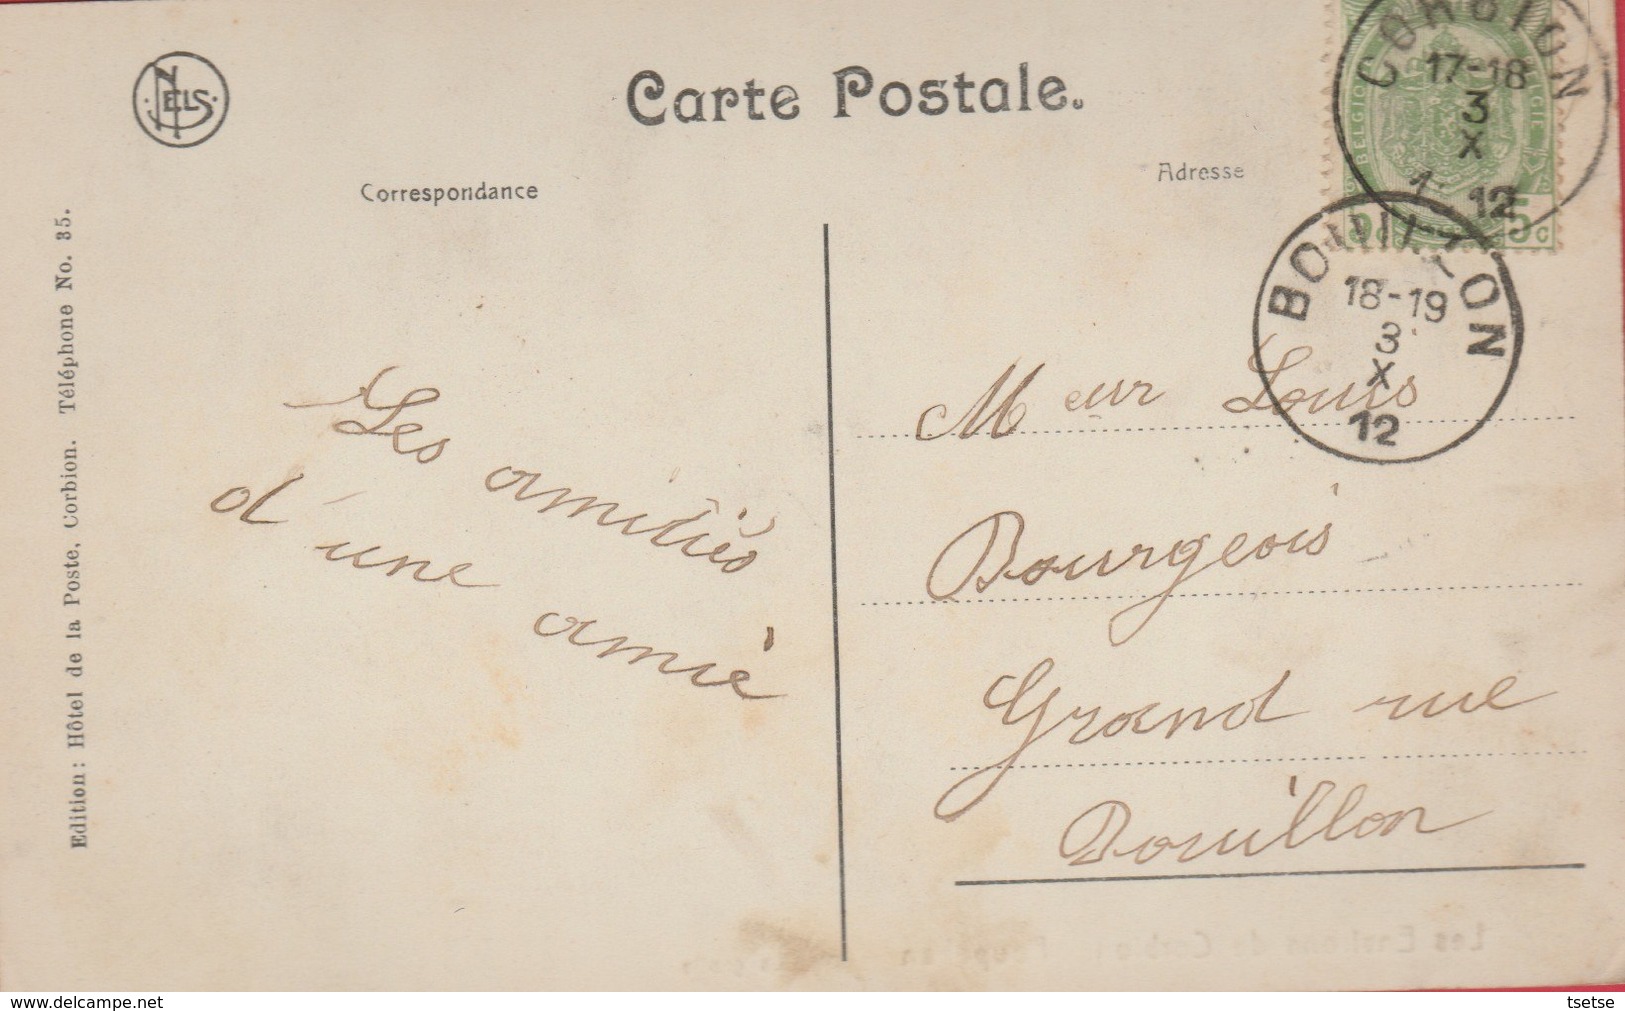 NELS
Carte Postale.
Correspondance
Adresse
CORBION
17-18
3
X
12
BELGIQUE
5c
BOUILLON
18-19
3
X
12
Edition: Hôtel de la Poste, Corbion. Téléphone No. 35.
Les amitiés
d'une amie
Meur Louis
Bourgeois
Grand rue
Bouillon
Les Environs de Corbion
www.delcampe.net
tsetse